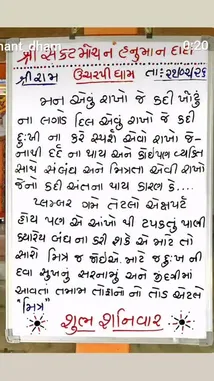 nant_dham
0:20
શ્રી સંકટમોચન હનુમાન દાદા
શ્રી રામ ઉચરપી ધામ તા:
મન એવું રાખો જે કદી ખોટું
ના લગાડે દિલ એવું રાખો જે કદી
દુઃખી ના કરે સ્પર્શ એવો રાખો જે-
નાથી દર્દ ના થાય અને કોઈપણ વ્યક્તિ
સાથે સંબંધ અને મિત્રતા એવી રાખો
જેનો કદી અંત ના થાય કારણ કે....
પ્લમ્બર ગમે તેટલો એક્ષપર્ટ
હોય પણ એ આંખો થી ટપકતું પાણી
ક્યારેય બંધ ના કરી શકે એ માટે તો
સારો મિત્ર જ જોઈએ. માટે જ દુઃખ ની
દવા સુખનું સરનામું અને જીંદગીમાં
આવતાં તમામ તોફાનો નો તોડ એટલે
"મિત્ર"
શુભ શનિવાર